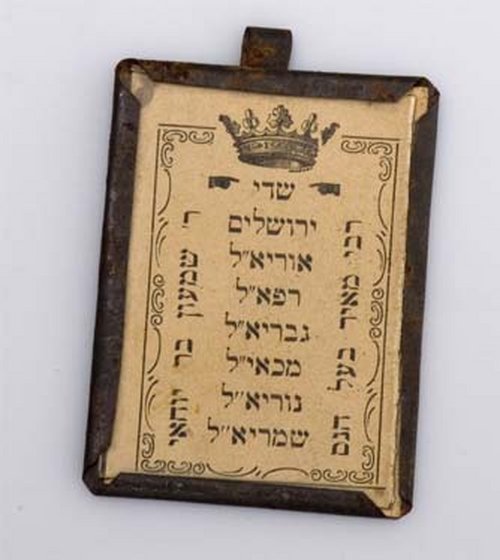 שדי
ירושלים
אוריא״ל
רפא״ל
גבריא״ל
מכאי״ל
נוריא״ל
שמריא״ל
רבי מאיר בעל הנס
ר׳ שמעון בר יוחאי